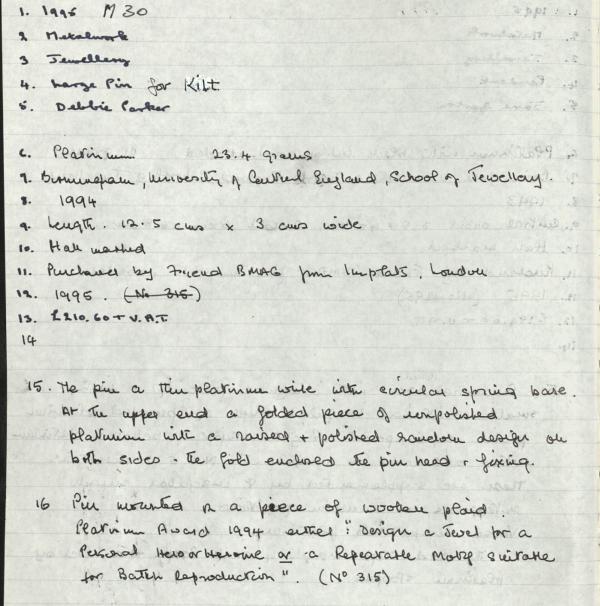 1. 1995 M30
2 Metalwork
3 Jewellery
4. Large Pin for Kilt
5. Debbie Parker
6. Platinum 23.4 grams
7. Birmingham, University of Central England, School of Jewellery.
8. 1994
9. Length. 12.5 cms x 3 cms wide
10. Hall marked
11. Purchased by Friend BMAG from Implats. London
12. 1995. (No 315)
13. £210.60 + V.A.T
14
15. The pin a thin platinum wire with circular spring base.
At the upper end a folded piece of unpolished
platinum with a raised + polished random design on
both sides. The fold enclosed the pin head + fixing.
16 Pin mounted on a piece of woollen plaid
Platinum Award 1994 either "Design a Jewel for a
Personal Hero or Heroine or a Repeatable Motif Suitable
for Batch Reproduction". (No 315)